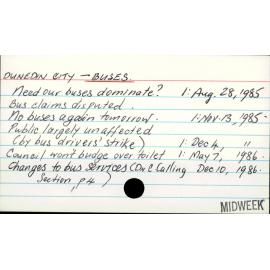 DUNEDIN CITY — BUSES.
Need our buses dominate? 1: Aug. 28, 1985
Bus claims disputed.
No buses again tomorrow. 1: Nov. 13, 1985.
Public largely unaffected
(by bus drivers' strike) 1: Dec 4, "
Council won't budge over toilet 1: May 7, 1986.
Changes to bus services (Dn & Calling Dec 10, 1986.
Section, p4)
MIDWEEK